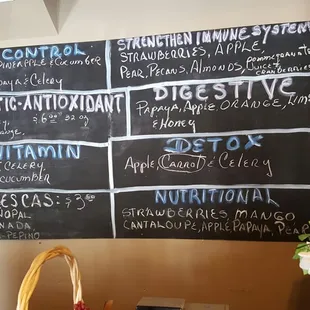 CONTROL
PINEAPPLE & CUCUMBER
PAYA & CELERY
TIC-ANTIOXIDANT
$6.00 32 oz
ANGE.
VITAMIN
CELERY,
CUCUMBER
ESCAS: $3.50
NOPAL
NADA
-PEPINO
STRENGTHEN IMMUNE SYSTEM
STRAWBERRIES, APPLE,
PEAR, PECANS, ALMONDS, POMMEGRANATE
JUICE & CRANBERRIES
DIGESTIVE
PAPAYA, APPLE, ORANGE, LIME
& HONEY
DETOX
APPLE, CARROT & CELERY
NUTRITIONAL
STRAWBERRIES MANGO
CANTALOUPE, APPLE PAPAYA, PEAR